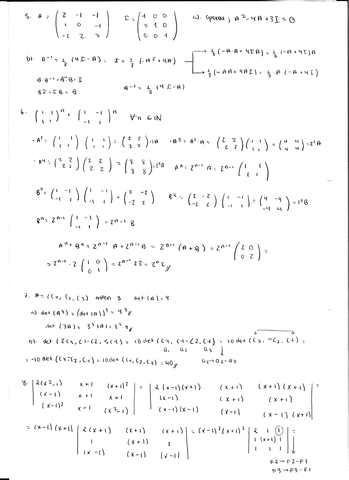 5. A = ( 2 -1 -1 / 1 0 -1 / -1 2 3 ) I = ( 1 0 0 / 0 1 0 / 0 0 1 ) a) operar, A² - 4A + 3I = 0
b) A⁻¹ = 1/3 (4I - A) I = 1/3 (-A² + 4A)
1/3 (-A·A + 4IA) = 1/3 (-A + 4I) A
1/3 (-AA + 4AI) = 1/3 A (-A + 4I)
B·B⁻¹ = B⁻¹B = I
A⁻¹ = 1/3 (4I - A)
6. ( 1 1 / 1 1 )ⁿ + ( 1 -1 / -1 1 )ⁿ ∀ n ∈ N
A² = ( 1 1 / 1 1 ) ( 1 1 / 1 1 ) = ( 2 2 / 2 2 ) = 2A A³ = A²·A = ( 2 2 / 2 2 ) ( 1 1 / 1 1 ) = ( 4 4 / 4 4 ) = 2²A
A⁴ = ( 2 2 / 2 2 ) ( 2 2 / 2 2 ) = ( 8 8 / 8 8 ) = 2³A Aⁿ = 2ⁿ⁻¹ A = 2ⁿ⁻¹ ( 1 1 / 1 1 )
B² = ( 1 -1 / -1 1 ) ( 1 -1 / -1 1 ) = ( 2 -2 / -2 2 ) B³ = ( 2 -2 / -2 2 ) ( 1 -1 / -1 1 ) = ( 4 -4 / -4 4 ) = 2²B
Bⁿ = 2ⁿ⁻¹ ( 1 -1 / -1 1 ) = 2ⁿ⁻¹ B
Aⁿ + Bⁿ = 2ⁿ⁻¹ A + 2ⁿ⁻¹ B = 2ⁿ⁻¹ (A + B) = 2ⁿ⁻¹ ( 2 0 / 0 2 ) =
= 2ⁿ⁻¹·2 ( 1 0 / 0 1 ) = 2ⁿ⁻¹ 2I = 2ⁿ I
7. A = (C1, C2, C3) orden 3 det (A) = 4
a) det (A³) = (det (A))³ = 4³
det (3A) = 3³ |A| = 3³·4
8. | 2(x²-1) x+1 (x+1)² / (x-1) x+1 x+1 / (x-1)² x-1 x²-1 | = | 2(x-1)(x+1) (x+1) (x+1)(x+1) / (x-1) (x+1) (x+1) / (x-1)(x-1) (x-1) (x-1)(x+1) | =
= (x-1)(x+1) | 2(x+1) (x+1) (x+1) / 1 (x+1) 1 / (x-1) (x-1) (x-1) | = (x-1)²(x+1)² | 2 1 1 / 1 (x+1) 1 / 1 1 1 | =
F2→F2-F1
F3→F3-F1